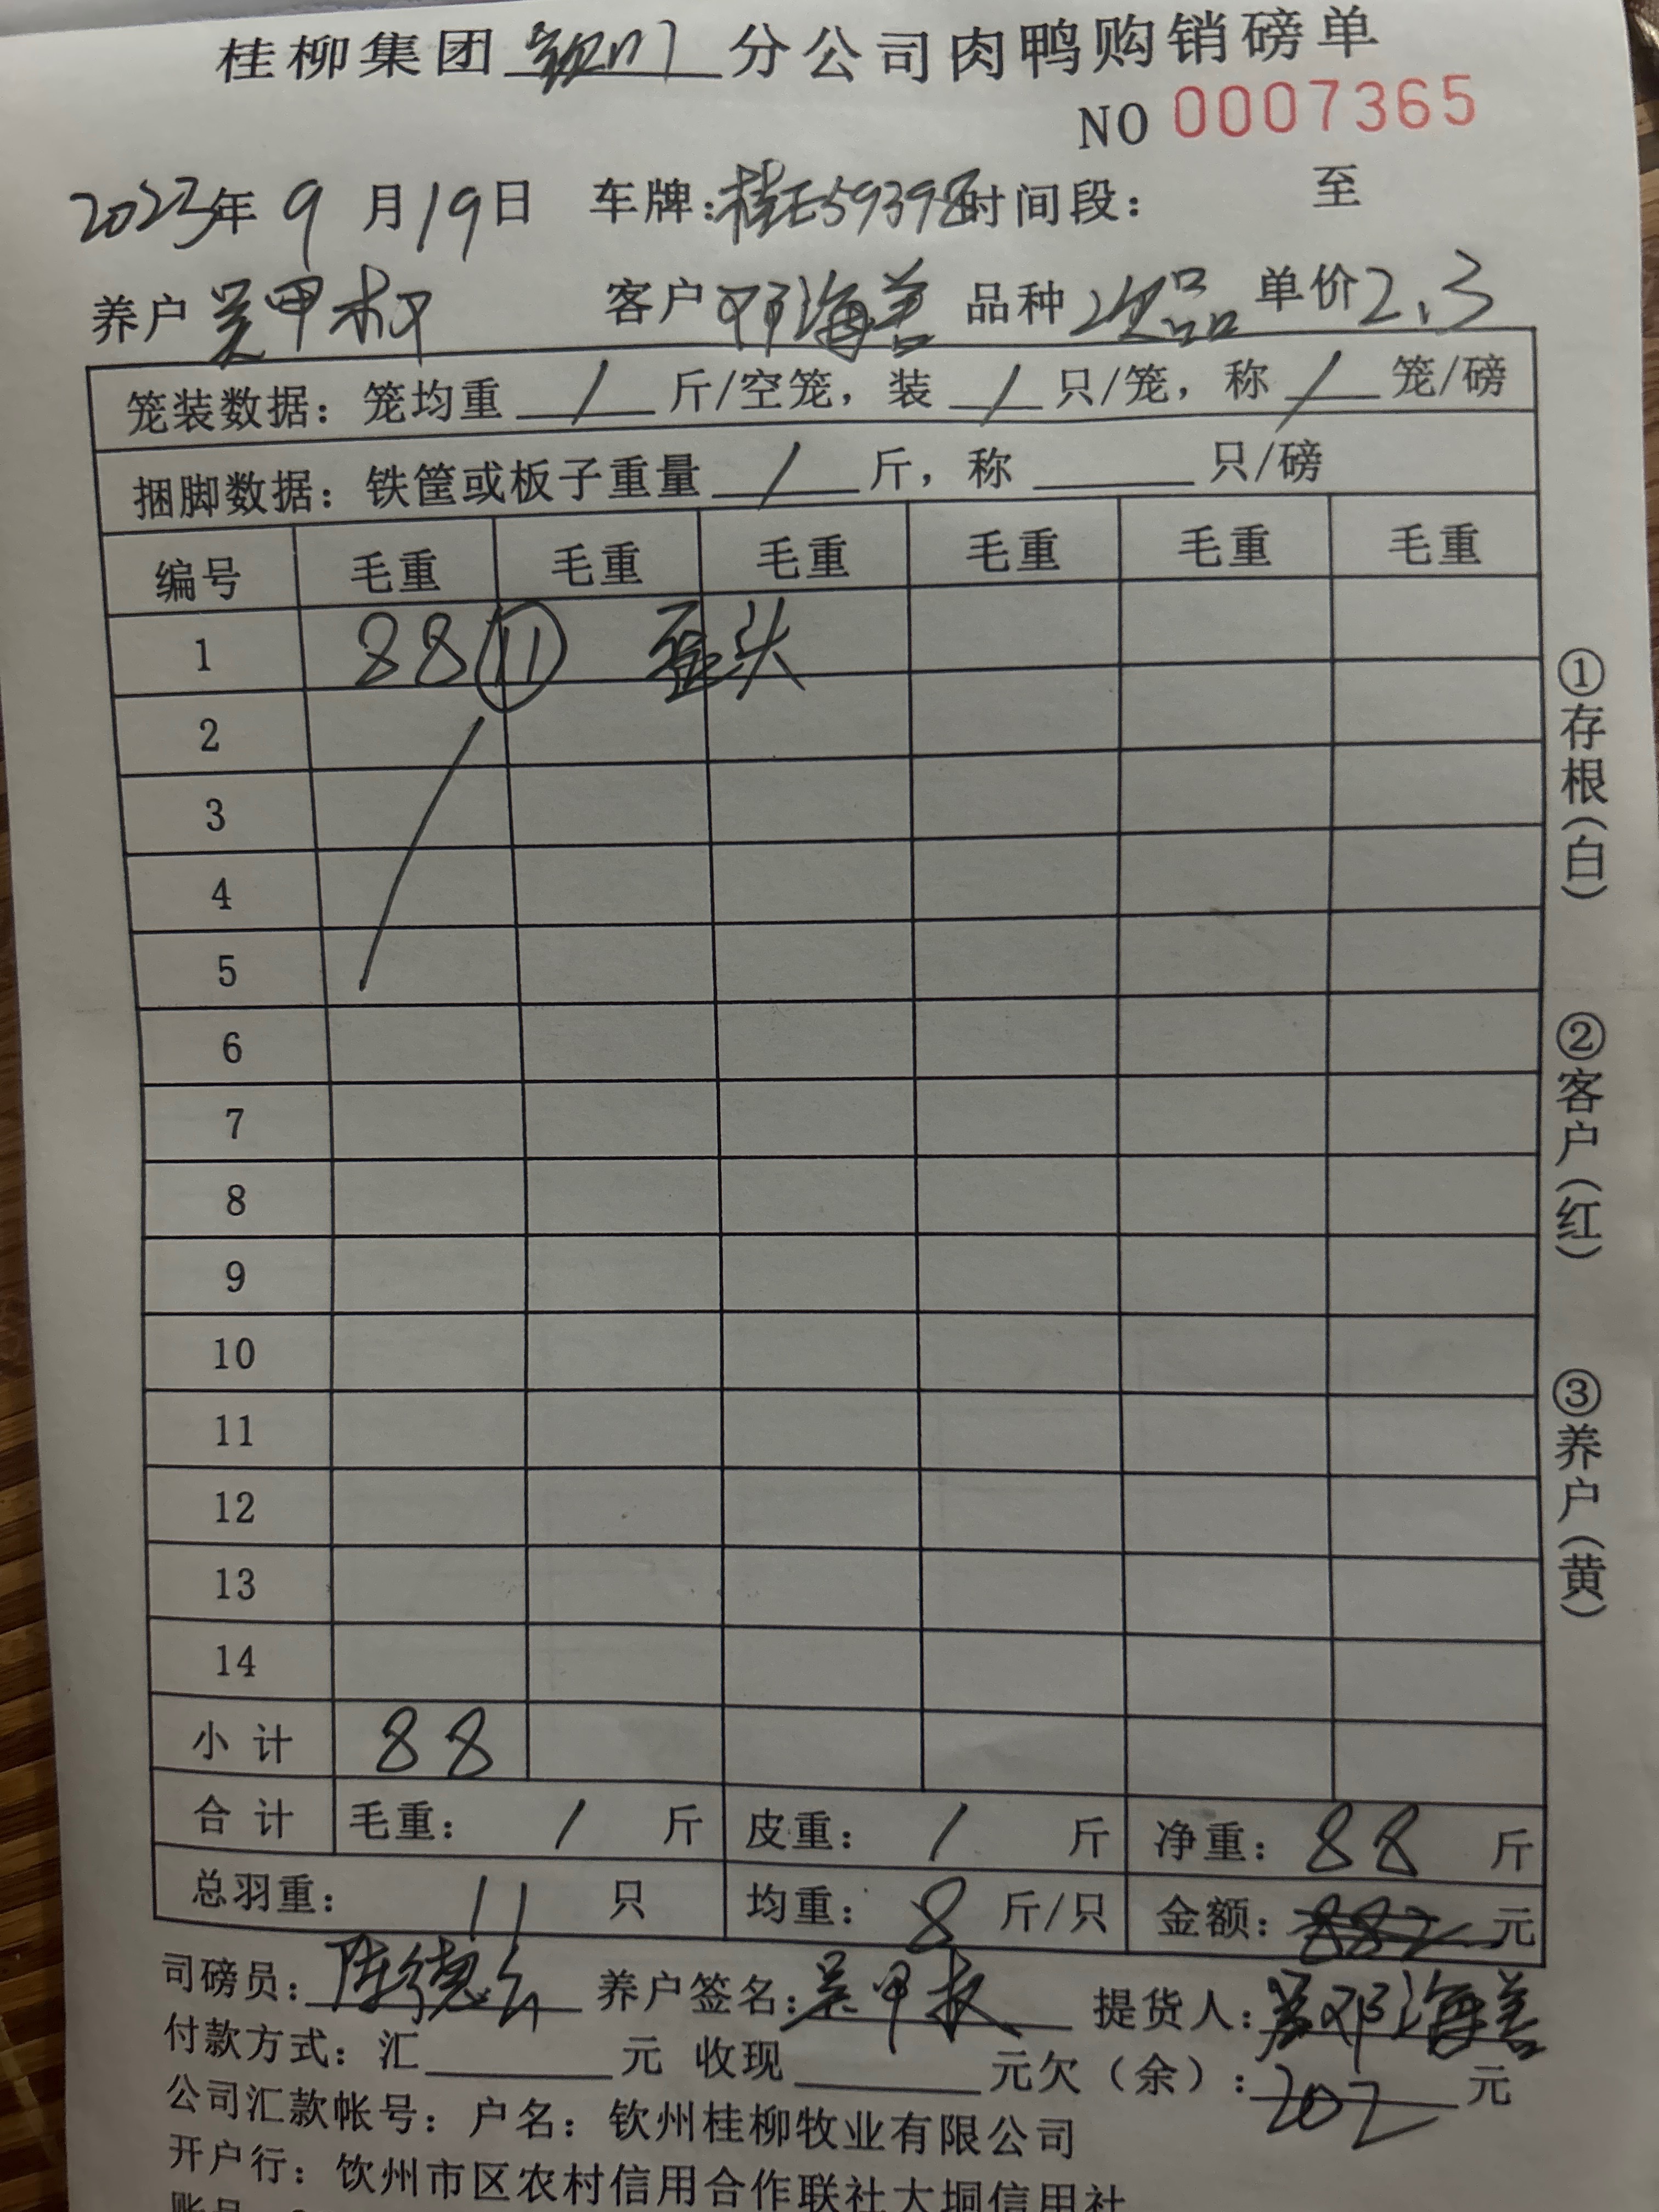 桂柳集团 钦州 分公司肉鸭购销磅单
NO 0007365
2023年 9 月 19 日 车牌:桂E59398 时间段: 至
养户 吴甲权 客户 邓海善 品种 次品 单价 2.3
笼装数据: 笼均重 / 斤/空笼, 装 / 只/笼, 称 / 笼/磅
捆脚数据: 铁筐或板子重量 / 斤, 称 只/磅
编号 毛重 毛重 毛重 毛重 毛重 毛重
1 88 ⑪ 歪头
2
3
4
5
6
7
8
9
10
11
12
13
14
小计 88
合计 毛重: / 斤 皮重: / 斤 净重: 88 斤
总羽重: 11 只 均重: 8 斤/只 金额: 元
司磅员: 陈德 养户签名: 吴甲权 提货人: 邓海善
付款方式: 汇 元 收现 元欠(余): 202 元
公司汇款帐号: 户名: 钦州桂柳牧业有限公司
开户行: 钦州市区农村信用合作联社大垌信用社
①存根(白)
②客户(红)
③养户(黄)